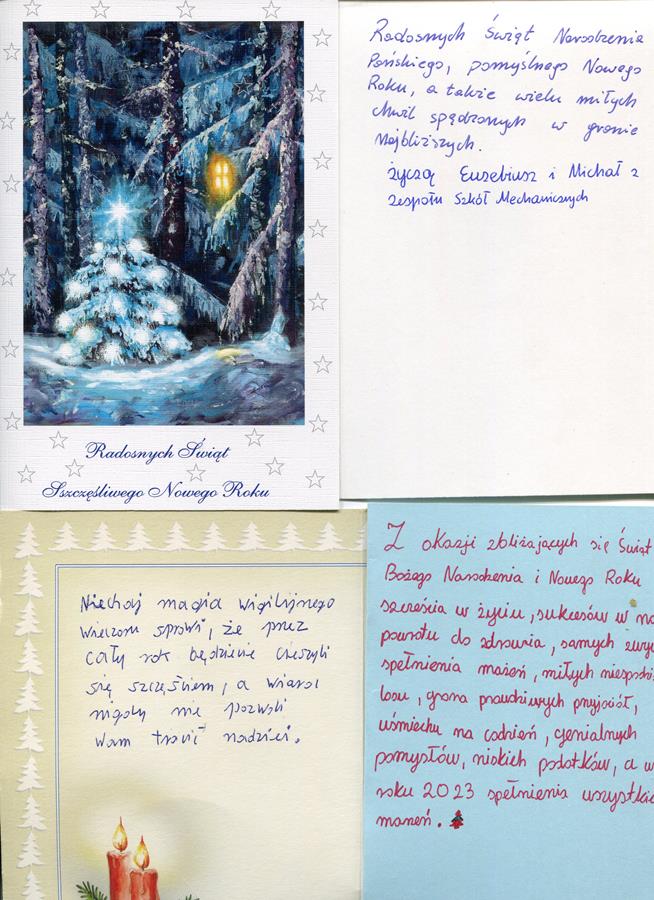 Radosnych Świąt
Szczęśliwego Nowego Roku
Radosnych Świąt Narodzenia
Pańskiego, pomyślnego Nowego
Roku, a także wielu miłych
chwil spędzonych w gronie
Najbliższych.
życzą Euzebiusz i Michał z
zespołu Szkół Mechanicznych
Niechaj magia wigilijnego
wieczoru sprawi, że przez
cały rok będziecie cieszyli
się szczęściem, a wiara
nigdy nie pozwoli
Wam tracić nadziei.
Z okazji zbliżających się Świąt
Bożego Narodzenia i Nowego Roku
szczęścia w życiu, sukcesów w
powrotu do zdrowia, samych
spełnienia marzeń, miłych
losu, grona prawdziwych przyjaciół,
uśmiechu na codzień, genialnych
pomysłów, niskich podatków, a w
roku 2023 spełnienia wszystkich
marzeń.